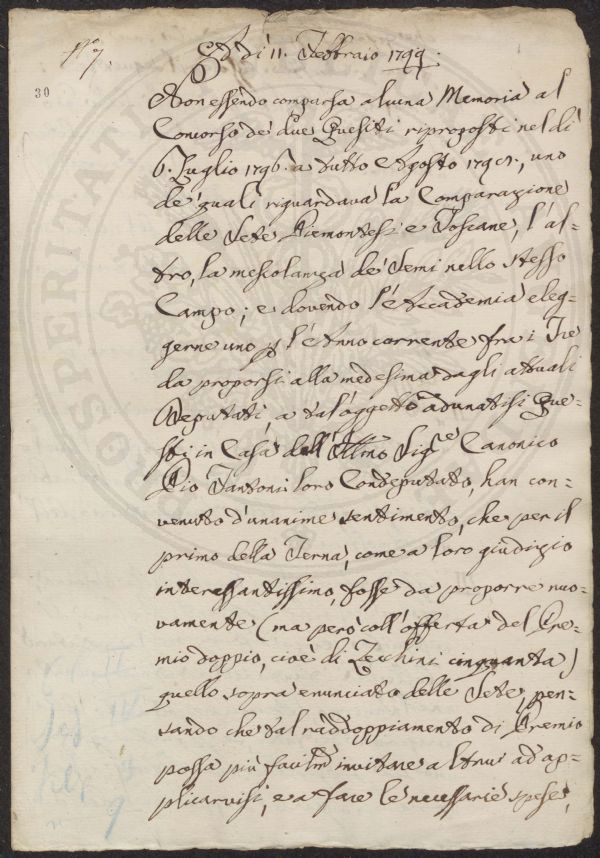 A dì 11. Febbraio 1799:
30
Non essendo comparsa alcuna Memoria al
Concorso de' due Quesiti riproposti nel dì
6. Luglio 1796. a tutto Agosto 1797., uno
de' quali riguardava la Comparazione
delle Sete Piemontesi e Toscane, l'al-
tro, la mescolanza de' Semi nello stesso
Campo; e dovendo l'Accademia eleg-
gerne uno p l'Anno corrente fra i Tre
da proporsi alla medesima dagli attuali
Deputati, a tal'oggetto adunatisi Que-
sti in Casa dell'Illmo Sigre Canonico
Pio Fantoni loro Condeputato, han con-
venuto d'unanime sentimento, che per il
primo della Terna, come a loro giudizio
interessantissimo, fosse da proporre nuo-
vamente (ma però coll'offerta del Pre-
mio doppio, cioè di Zechini cinquanta)
quello sopra enunciato delle Sete, pen-
sando che tal raddoppiamento di Premio
possa più facilmte invitare altrui ad ap-
plicarvisi, e a fare le necessarie spese;
PROSPERITATI